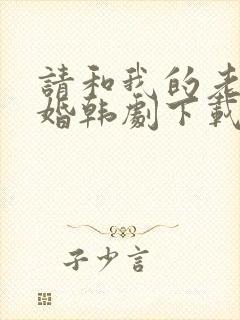 請和我的老
婚韩劇下載
子少言